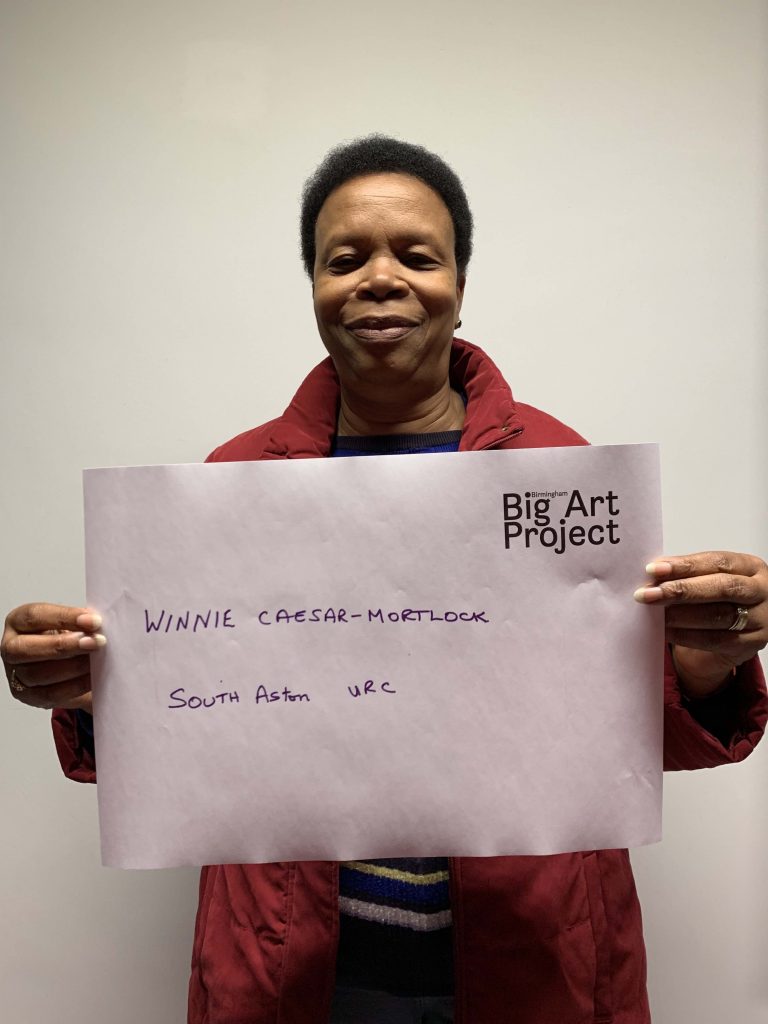 Birmingham
Big Art
Project
WINNIE CAESAR-MORTLOCK
SOUTH Aston URC